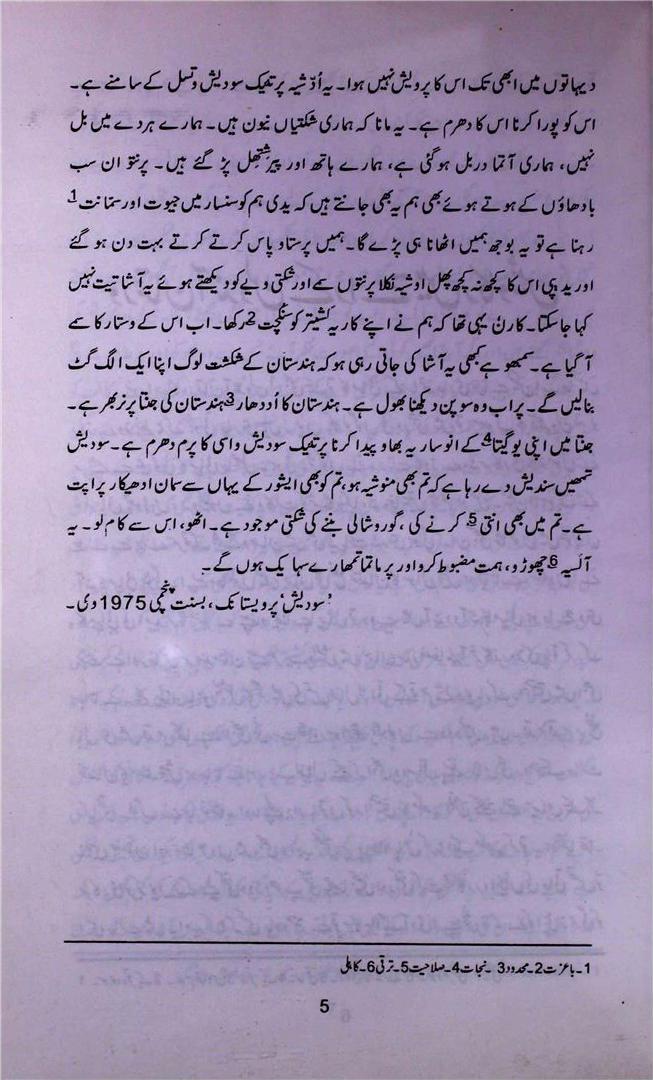 دیہاتوں میں ابھی تک اس کا پرویش نہیں ہوا۔ یہ اُدّشیہ پرتیک سودیش وتسل کے سامنے ہے۔
اس کو پورا کرنا اس کا دھرم ہے۔ یہ مانا کہ ہماری شکتیاں نیون ہیں۔ ہمارے ہردے میں بل
نہیں، ہماری آتما دربل ہوگئی ہے، ہمارے ہاتھ اور پیر شتھل پڑ گئے ہیں۔ پرنتو ان سب
بادھاؤں کے ہوتے ہوئے بھی ہم یہ بھی جانتے ہیں کہ یدی ہم کو سنسار میں جیوت اور سمّانت1
رہنا ہے تو یہ بوجھ ہمیں اٹھانا ہی پڑے گا۔ ہمیں پرستاو پاس کرتے کرتے بہت دن ہو گئے
اور یدیپی اس کا کچھ نہ کچھ پھل اوشیہ نکلا پرنتو ں سے اور شکتی ویے کو دیکھتے ہوئے یہ آشاتیت نہیں
کہا جاسکتا۔ کارن یہی تھا کہ ہم نے اپنے کاریہ کشیتر کو سنکچت2 رکھا۔ اب اس کے وستار کا سمے
آ گیا ہے۔ سمبھو ہے کبھی یہ آشا کی جاتی رہی ہو کہ ہندستان کے شکشت لوگ اپنا ایک الگ گٹ
بنالیں گے۔ پر اب وہ سوپن دیکھنا بھول ہے۔ ہندستان کا اُددھار3 ہندستان کی جنتا پر نربھر ہے۔
جنتا میں اپنی یوگیتا4 کے انوسار یہ بھاو پیدا کرنا پرتیک سودیش واسی کا پرم دھرم ہے۔ سودیش
تمھیں سندیش دے رہا ہے کہ تم بھی منوشیہ ہو، تم کو بھی ایشور کے یہاں سے سمان ادھیکار پراپت
ہے۔ تم میں بھی انتی5 کرنے کی، گوروشالی بننے کی شکتی موجود ہے۔ اٹھو، اس سے کام لو۔ یہ
آلسیہ6 چھوڑو، ہمت مضبوط کرو اور پرماتما تمھارے سہایک ہوں گے۔
'سودیش' پرویستانک، بسنت پنچمی 1975 وی۔
1۔ باعزت 2۔ محدود 3۔ نجات 4۔ صلاحیت 5۔ ترقی 6۔ کاہلی
5